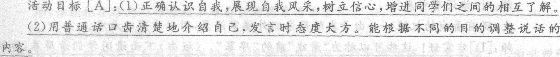 活动目标 [A]:(1)正确认识自我,展现自我风采,树立信心,增进同学们之间的相互了解。
(2)用普通话口齿清楚地介绍自己,发言时态度大方。能根据不同的目的调整说话的
内容。